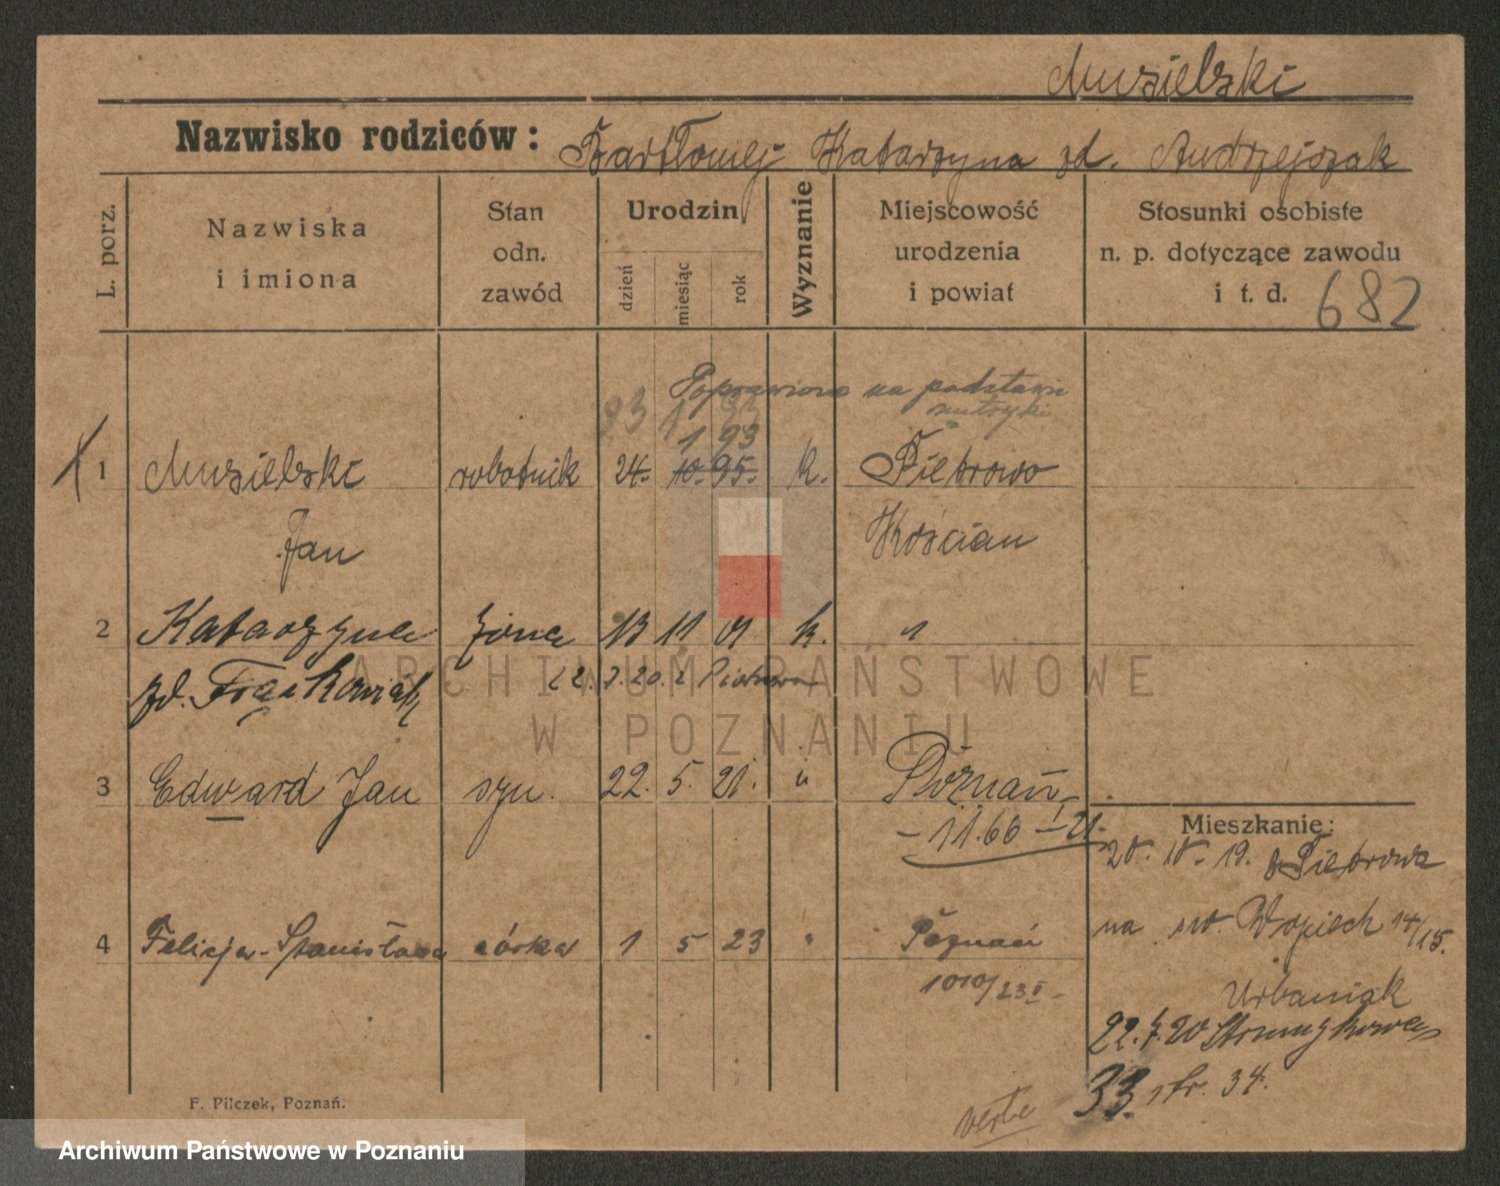 Musielski
Nazwisko rodziców: Bartłomiej Katarzyna zd. Andrzejczak
L. porz.
Nazwiska i imiona
Stan odn. zawód
Urodzin
dzień
miesiąc
rok
Wyznanie
Miejscowość urodzenia i powiat
Stosunki osobiste n. p. dotyczące zawodu i t. d.
682
Poprawiono na podstawie metryki
1 93
1 Musielski robotnik 24. 10. 95. k. Pietrowo
Jan Kościan
2 Katarzyna żona 13 11 01 k. "
zd. Frąckowiak 22. 7. 20. z Piotrowa
3 Edward Jan syn. 22. 5. 21. " Poznań
- 11.60 - I 21.
Mieszkanie:
20. 10. 19. z Pietrowa
na św. Wojciech 14/15.
4 Felicja-Stanisława córka 1 5 23 " Poznań
1010/23 I -
Urbaniak
22. 7. 20
33. str. 34.
verte
F. Pilczek, Poznań.
ARCHIWUM PAŃSTWOWE
W POZNANIU
Archiwum Państwowe w Poznaniu